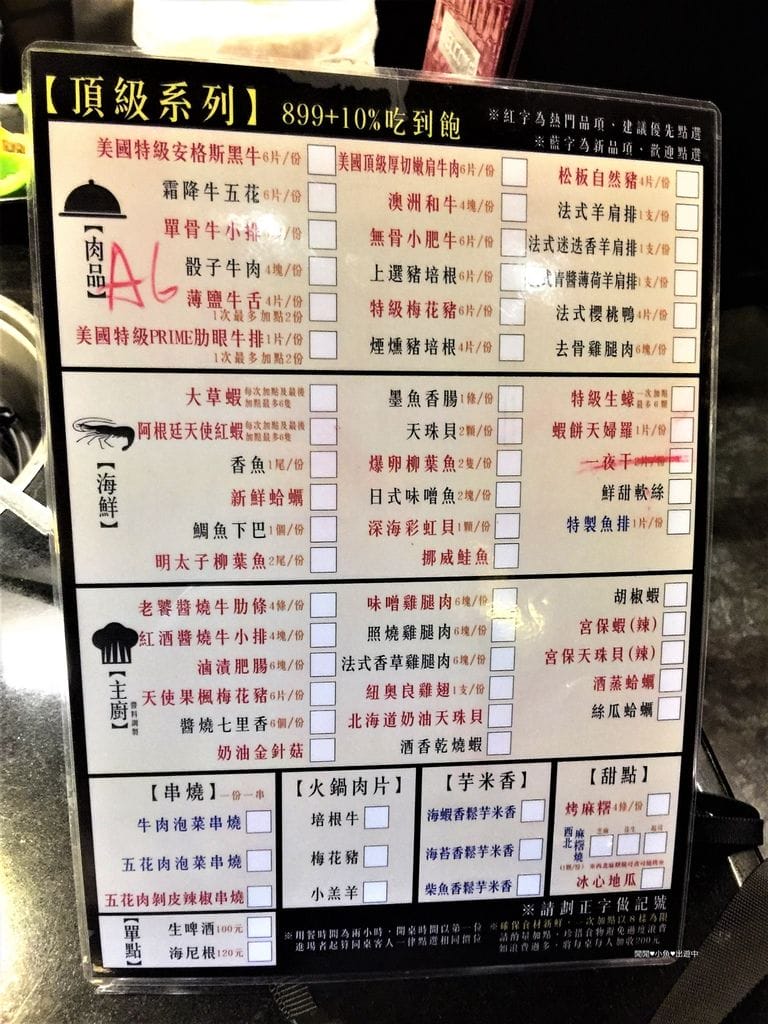 【頂級系列】 899+10%吃到飽
※紅字為熱門品項、建議優先點選
※藍字為新品項、歡迎點選
【肉品】
A6
美國特級安格斯黑牛6片/份
霜降牛五花6片/份
單骨牛小排
骰子牛肉4塊/份
薄鹽牛舌4片/份
1次最多加點2份
美國特級PRIME肋眼牛排1片/份
1次最多加點2份
美國頂級厚切嫩肩牛肉6片/份
澳洲和牛4塊/份
無骨小肥牛6片/份
上選豬培根6片/份
特級梅花豬6片/份
煙燻豬培根4片/份
松板自然豬4片/份
法式羊肩排1支/份
法式迷迭香羊肩排1支/份
式青醬薄荷羊肩排1支/份
法式櫻桃鴨4片/份
去骨雞腿肉6塊/份
【海鮮】
大草蝦每次加點及最後加點最多6隻
阿根廷天使紅蝦每次加點及最後加點最多6隻
香魚1尾/份
新鮮蛤蠣
鯛魚下巴1個/份
明太子柳葉魚2尾/份
墨魚香腸1條/份
天珠貝2顆/份
爆卵柳葉魚2隻/份
日式味噌魚2塊/份
深海彩虹貝1顆/份
挪威鮭魚
特級生蠔一次加點最多6顆
蝦餅天婦羅1片/份
一夜干2片/份
鮮甜軟絲
特製魚排1片/份
【主廚】醬料調製
老饕醬燒牛肋條4條/份
紅酒醬燒牛小排4塊/份
滷漬肥腸6塊/份
天使果楓梅花豬6片/份
醬燒七里香6個/份
奶油金針菇
味噌雞腿肉6塊/份
照燒雞腿肉6塊/份
法式香草雞腿肉6塊/份
紐奧良雞翅1支/份
北海道奶油天珠貝
酒香乾燒蝦
胡椒蝦
宮保蝦(辣)
宮保天珠貝(辣)
酒蒸蛤蠣
絲瓜蛤蠣
【串燒】一份一串
牛肉泡菜串燒
五花肉泡菜串燒
五花肉剝皮辣椒串燒
【火鍋肉片】
培根牛
梅花豬
小羔羊
【芋米香】
海蝦香鬆芋米香
海苔香鬆芋米香
柴魚香鬆芋米香
【甜點】
烤麻糬4條/份
西北麻糬燒(1顆/份)
芝麻 花生
冰心地瓜
※請劃正字做記號
【單點】
生啤酒100元
海尼根120元
※用餐時間為兩小時，開桌時間以第一位
進場者起算同桌客人一律點選相同價位
※確保食材新鮮，一次加點以8樣為限
閒閒♥小魚♥出遊中